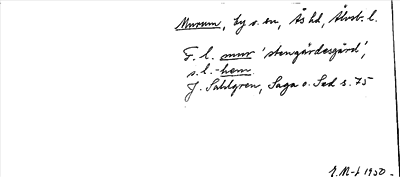 Murum, by o. sn, Ås hd, Älvsb. l.
F. l. mur 'stengärdesgård',
s. l. -hem
J. Sahlgren, Saga o. Sed s. 75
1950